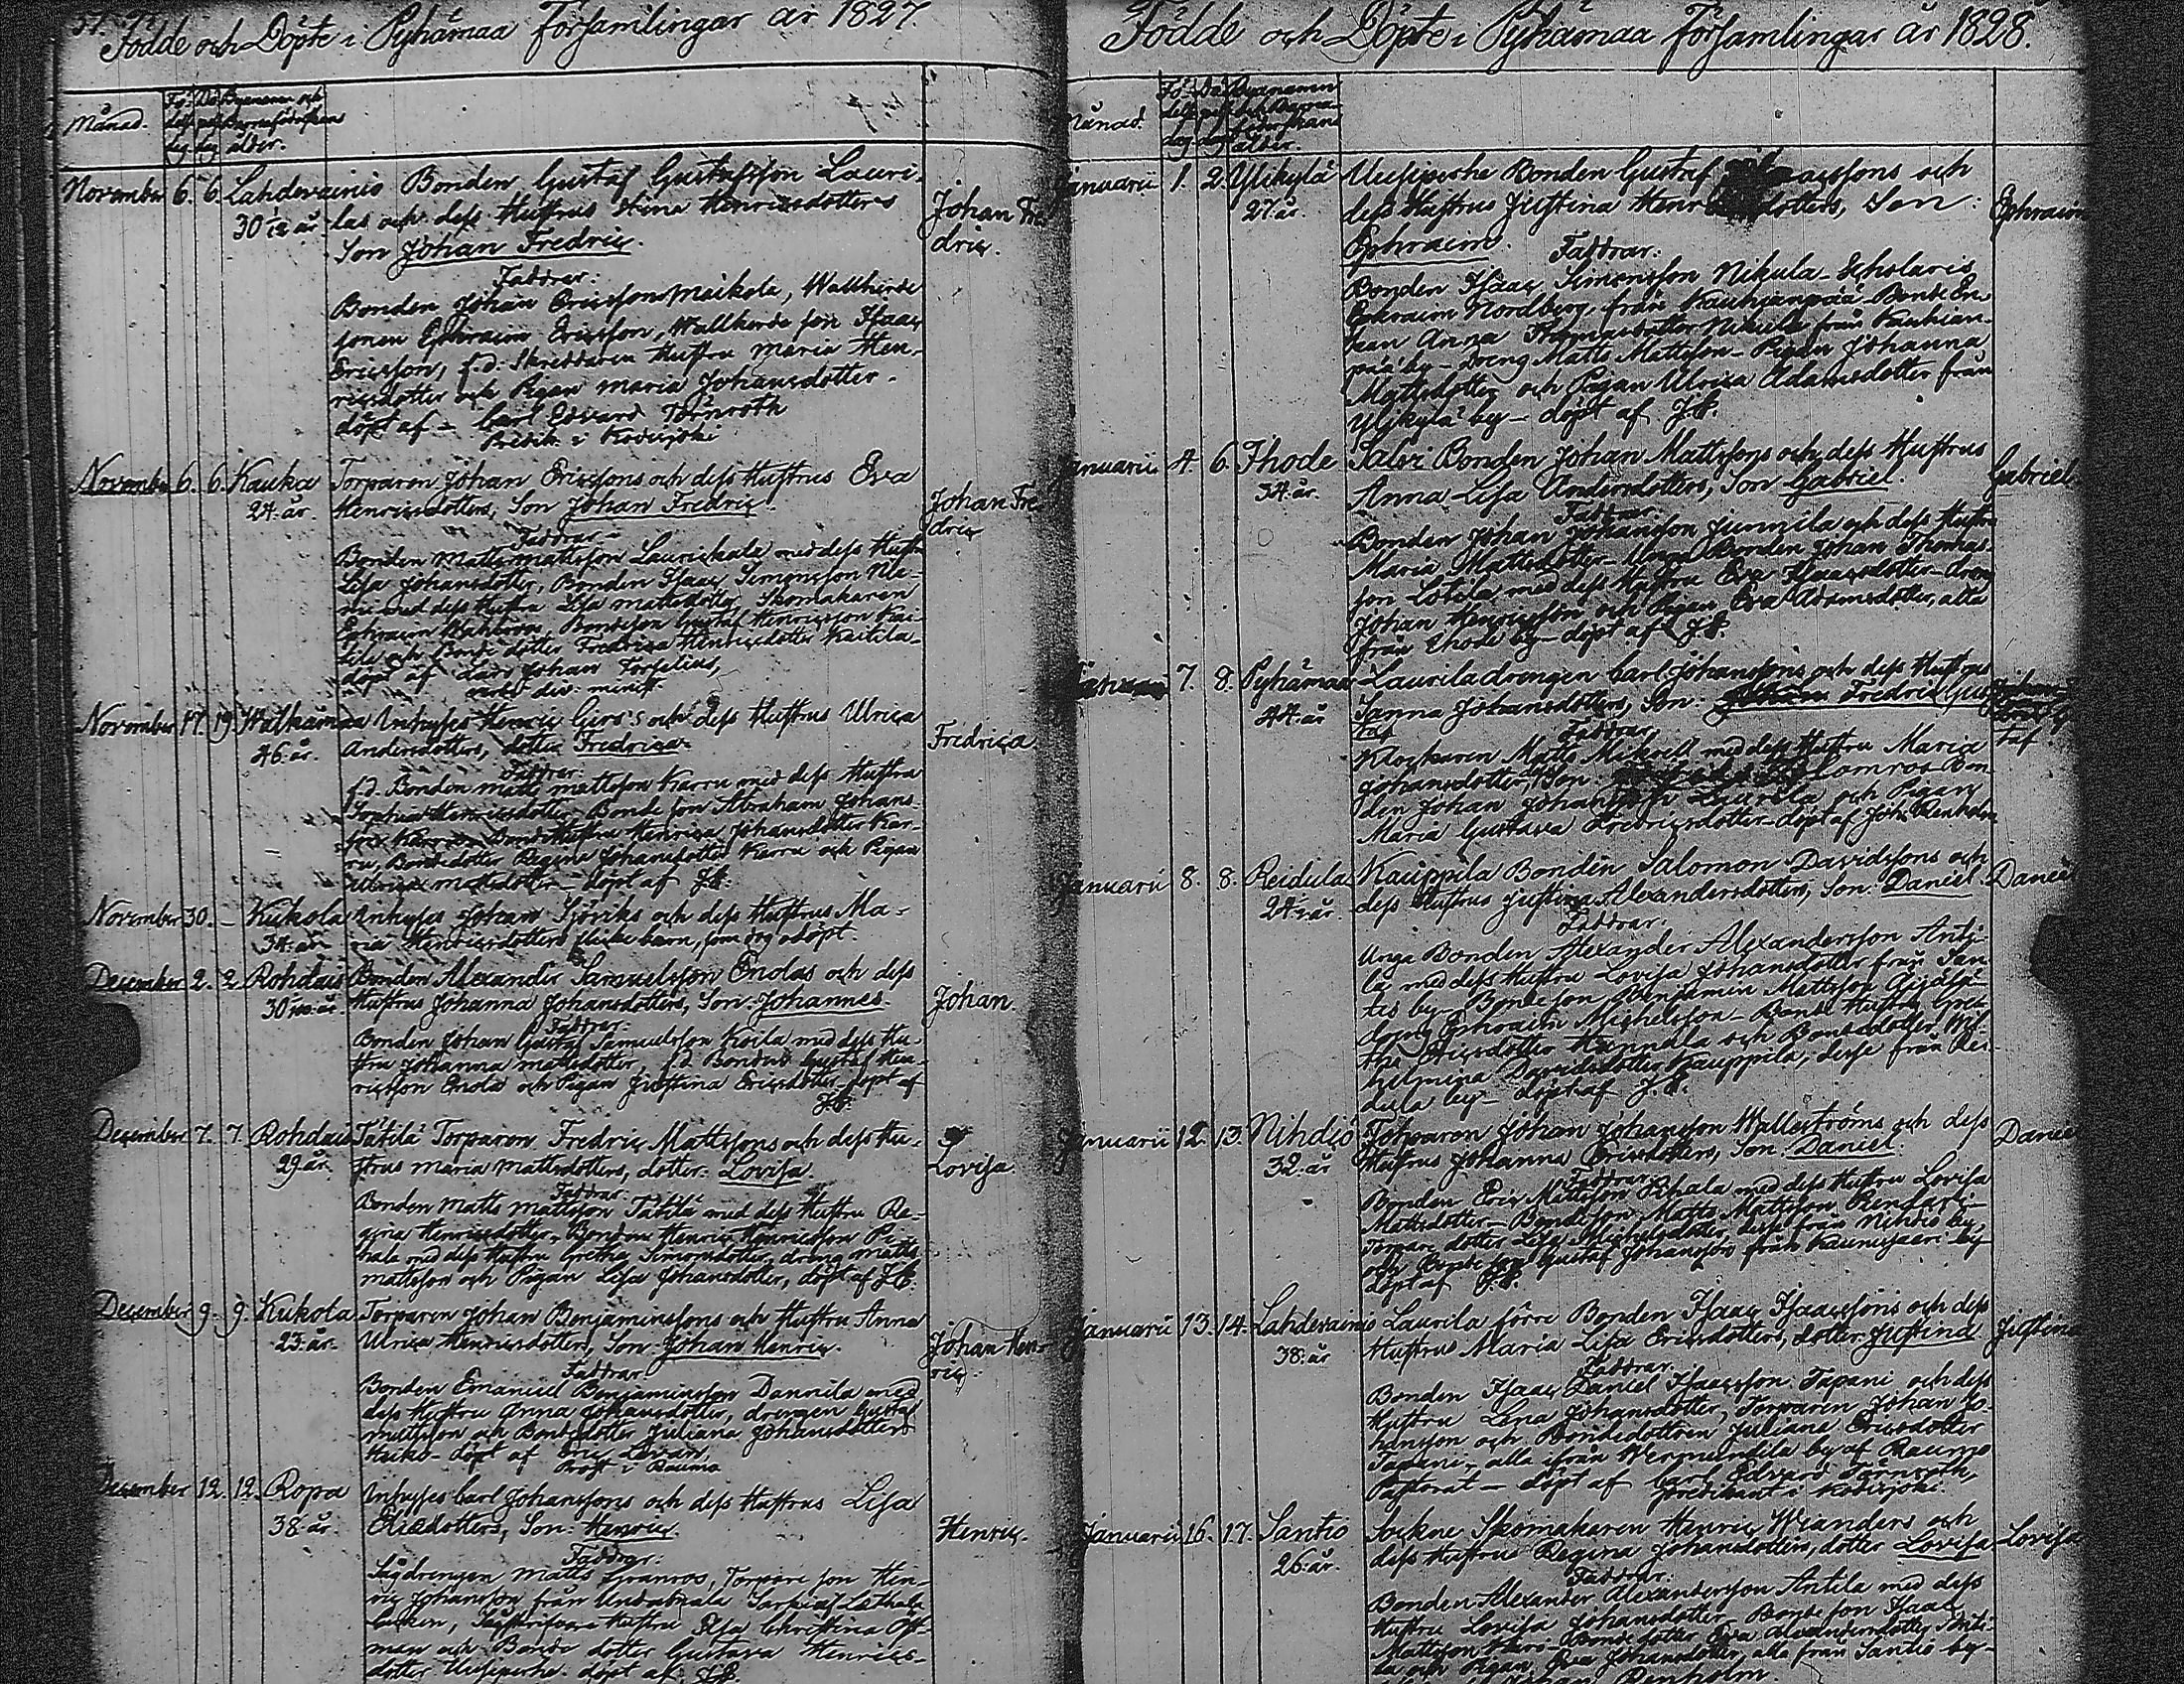 Födde och Döpte i Pyhämaa Församlingar år 1827.
Månad.
ålder.
November 6. 6. Lahdevainio Bonden Gustaf Gustafsson Lauri-
30 år las och dess Hustrus Stina Henricsdotters
Son Johan Fredric.
Johan Fre
dric.
Faddrar:
Bonden Johan Ericsson Maikola, Wallherde
sonen Ephraim Ericsson, Wallherde son Isaac
Ericsson, f.d. Skreddaren Hustru Maria Hen-
ricsdotter och Pigan Maria Johansdotter.
döpt af – Carl Edvard Törnroth
Predik. i Kodisjoki
November 6. 6. Kauka Torparen Johan Ericssons och dess Hustrus Eva
24. år. Henricsdotters, Son Johan Fredric.
Johan Fre
dric
Faddrar
Bonden Matts Mattsson med dess Hustru
Lisa Johansdotter, Bonden Isaac Simonsson
med dess Hustru Lisa Mattsdotter, Skomakaren
Ephraim Bondeson Gustaf Henricsson Kai-
tila och Bonde dotter Fredrica Henricsdotter Kaitila
döpt af Lars Johan Forselius,
verbi div: minist.
November 17. 19. 46. år. Inhyses Henric och dess Hustrus Ulrica
Andersdotters, dotter Fredrica
Fredrica
Faddrar:
f.d. Bonden Matts Mattsson Karru med dess Hustru
Sophia Henricsdotter, Bonde son Abraham Johans-
son Karru, Bonde Hustru Henrica Johansdotter Kar-
ru, Bondedotter Regina Johansdotter Karru och Pigan
Ulrica Mattsdotter – döpt af
November 30. – Kukola Inhyses Johan och dess Hustrus Ma-
34. år ria Henricsdotters flicke barn, som dog odöpt.
December 2. 2. Rohdais Bonden Alexander Samuelsson Enolas och dess
30 år. Hustrus Johanna Johansdotters, Son: Johannes.
Johan.
Faddrar:
Bonden Johan Gustaf Samuelsson Koila med dess Hu-
stru Johanna Mattsdotter, f.d. Bonden Gustaf Hen-
ricsson Enola och Pigan Justina Ericsdotter – döpt af
December 7. 7. Rohdais Tätilä Torparen Fredric Mattssons och dess Hu-
29. år. strus Maria Mattsdotters, dotter: Lovisa.
Lovisa
Faddrar:
Bonden Matts Mattsson Tätilä med dess Hustru Re-
gina Henricsdotter, Bonden Henric Henricsson Pi-
hala med dess Hustru Gretha Simonsdotter, dreng Matts
Mattsson och Pigan Lisa Johansdotter, döpt af
December 9. 9. Kukola Torparen Johan Benjaminssons och Hustru Anna
23. år. Ulrica Henricsdotters, Son: Johan Henric.
Johan Hen-
ric.
Faddrar
Bonden Emanuel Benjaminsson Dannila med
dess Hustru Anna Johansdotter, drengen Gustaf
Mattsson och Bondedotter Juliana Johansdotter
Heiko – döpt af Eric
Prost i Raumo
December 12. 12. Ropa Inhyses Carl Johanssons och dess Hustrus Lisa
38. år. Ericsdotters, Son: Henric.
Henric.
Faddrar:
Sågdrengen Matts Granros, Torpare son Hen-
ric Johansson från
Hustru Christina Öst-
man och Bonde dotter Gustava Henrics-
dotter Uusipirhe – döpt af
Födde och Döpte i Pyhämaa Församlingar år 1828.
Månad.
ålder
Januarii 1. 2. Ylikylä Uusipirhe Bonden Gustaf och
27. år. dess Hustrus Justina dotters, Son:
Ephraim.
Ephraim
Faddrar:
Bonden Isaac Simonsson Nikula – Scholaris
Ephraim Nordberg, från Kauhianpää – Bonde En-
kan Anna Thomasdotter Nikula från Kauhian-
pää by – dreng Matts Mattsson – Pigan Johanna
Mattsdotter och Pigan Ulrica Adamsdotter från
Ylikylä by – döpt af
Januarii 4. 6. Ihode Salvi Bonden Johan Mattssons och dess Hustrus
34. år. Anna Lisa Andersdotters, Son Gabriel.
Gabriel
Faddrar
Bonden Johan Johansson Junnila och dess Hustru
Maria Mattsdotter – Bonden Johan Thomas-
son med dess Hustru Eva Isaacsdotter – dreng
Johan Henricsson och Pigan Eva Adamsdotter, alla
från Ihode by – döpt af
7. 8. Pyhämaa Laurila drengen Carl Johanssons och dess Hustrus
44. år Sanna Johansdotters, Son: Johan Fredric Gus-
taf
taf
Faddrar
Klockaren Matts med dess Hustru Maria
Johansdotter, Bon-
den Johan Johansson Laurila och Pigan
Maria Gustava Fredricsdotter – döpt af Joh: Renholm
Januarii 8. 8. Reidula Kauppila Bonden Salomon Davidssons och
24. år. dess Hustrus Justina Alexandersdotters, Son: Daniel
Daniel
Faddrar.
Unga Bonden Alexander Alexandersson Anti-
la med dess Hustru Lovisa Johansdotter från San-
tio by – Bondeson Benjamin Mattsson
dreng Ephraim Michelsson – Bonde Hustru Gre-
tha Ericsdotter Hannula och Bondedotter Wil-
helmina Davidsdotter Kauppila, desse från Rei-
dula by – döpt af
Januarii 12. 13. Nihdiö Torparen Johan Johansson Wallströms och dess
32. år Hustrus Johanna Ericsdotters, Son: Daniel.
Daniel
Faddrar
Bonden Eric Mattsson med dess Hustru Lovisa
Mattsdotter – Bondeson Matts Mattsson
Torpare dotter Lisa Michelsdotter, desse från Nihdiö by,
och Bonde son Gustaf Johansson från Kaunissaari by
döpt af
Januarii 13. 14. Lahdevainio Laurila förre Bonden Isaac Isaacssons och dess
38. år Hustrus Maria Lisa Ericsdotters, dotter Justina
Justina
Faddrar.
Bonden Isaac Daniel Isaacsson Tapani och dess
Hustru Lena Johansdotter, Torparen Johan Jo-
hansson och Bondedottren Juliana Ericsdotter
Tapani, alla ifrån by af Raumo
Pastorat – döpt af Carl Edvard Törnroth,
Predikant i Kodisjoki.
Januarii 16. 17. Santio Sockne Skomakaren Henric Wianders och
26. år. dess Hustrus Regina Johansdotters, dotter Lovisa
Lovisa
Faddrar:
Bonden Alexander Alexandersson Antila med dess
Hustru Lovisa Johansdotter – Bonde son Isaac
Mattsson – Bonde dotter Eva Alexandersdotter Anti-
la och Pigan Eva Johansdotter, alla från Santio by –
Johan Renholm.